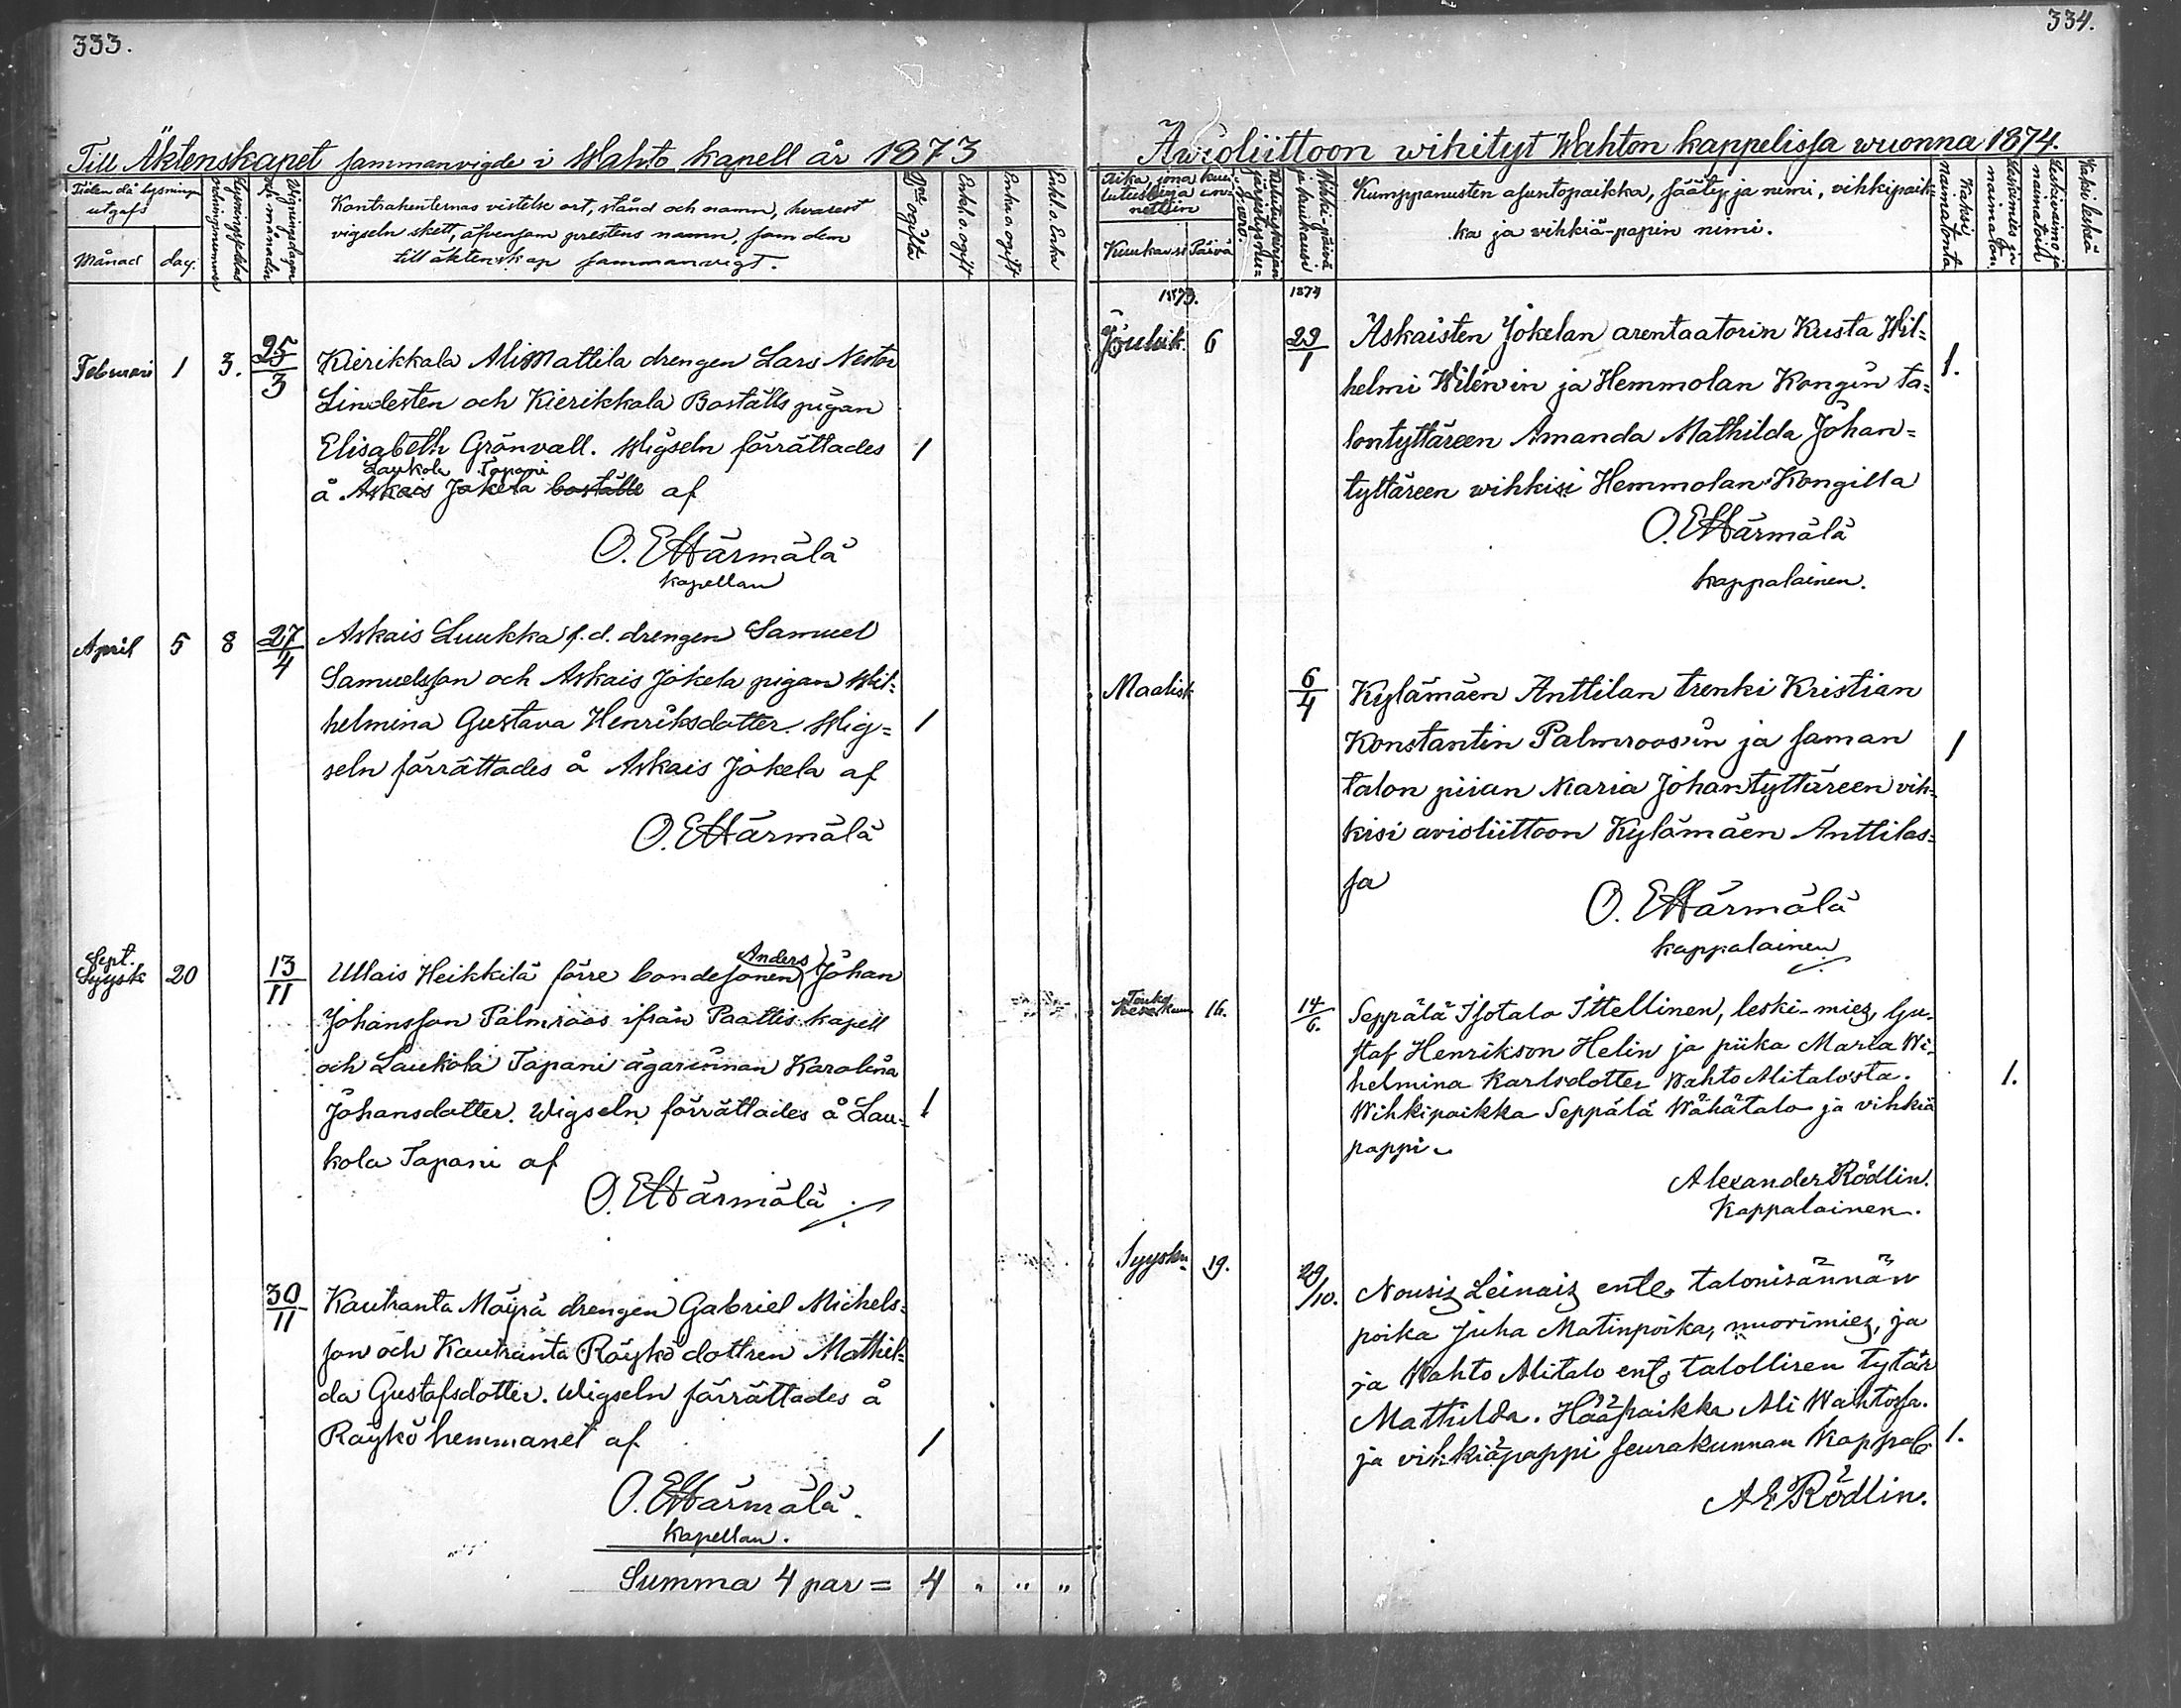 333.
Till Äktenskapet sammanvigde i Wahto kapell år 1873
Tiden då lysningen utgafs
Månad
dag.
Lysningssedelns ordningsnummer
Wigningsdagen och månaden
Kontrahenternas vistelse ort, stånd och namn, hvarest
vigseln skett, äfvensom prestens namn, som dem
till äktenskap sammanvigt.
Enkl. o. ogift
Enka o. ogift
Enkl. o. Enka
Februari 1 3. 25/3 Kierikkala AliMattila drengen Lars Nestor
Lindesten och Kierikkala Boställs pigan
Elisabeth Grönvall. Wigseln förrättades 1
Laukola Tapani
å Askais Jokela boställe af
O. E Härmälä
kapellan
April 5 8 27/4 Askais Luukka f.d. drengen Samuel
Samuelsson och Askais Jokela pigan Wil=
helmina Gustava Henriksdotter. Wig= 1
seln förrättades å Askais Jokela af
O. E Härmälä
Sept.
Anders
Syysk 20 13/11 Ullais Heikkilä förre bondesonen Johan
Johansson Palmroos ifrån Paattis kapell
och Laukola Tapani ägarinnan Karolina
Johansdotter. Wigseln förrättades å Lau= 1
kola Tapani af
O. E Härmälä
30/11 Kautranta Mäyrä drengen Gabriel Michels=
son och Kautranta Räykö dottren Mathil=
da Gustafsdotter. Wigseln förrättades å
Räykö hemmanet af 1
O. E Härmälä.
Kapellan.
Summa 4 par = 4 " " "
334.
Awioliittoon wihityt Wahton kappelissa wuonna 1874.
Aika, jona kuu=
lutuskirja an=
nettiin
Kuukausi
Päivä
Kuulutuskirjan järjestysnu=mero.
Wihki-päivä ja kuukausi
Kumppanusten asuntopaikka, sääty ja nimi, vihkipaik=
ka ja vihkiä-papin nimi.
Kaksi Naimatonta
Leskimies ja naimaton
Leskivaimo ja naimatoin
Kaksi leskeä
1873. 1874
Jouluk. 6 29/1 Askaisten Jokelan arentaatorin Kusta Wil=
helmi Wilénin ja Hemmolan Kongin ta= 1.
lontyttäreen Amanda Mathilda Johan=
tyttäreen wihkisi Hemmolan Kongilla
O. E Härmälä
kappalainen.
Maalisk 6/4 Kylämäen Anttilan trenki Kristian
Konstantin Palmroosin ja saman 1
talon piian Maria Johantyttäreen vih=
kisi avioliittoon Kylämäen Anttilas=
sa
O. E Härmälä
kappalainen
Touko
Kesäkuu 16. 14/6. Seppälä Isotalo Ittellinen, leski-mies, Gu-
staf Henrikson Helin ja piika Maria Wi-
helmina Karlsdotter Wahto Alitalosta. 1.
Wihkipaikka Seppälä Wähätalo ja vihkiä
pappi
Alexander Rödlin.
Kappalainen.
Syysku 19. 29/10. Nousis Leinais ent. talonisännän
poika Juha Matinpoika, nuorimies, ja
ja Wahto Alitalo ent. talollisen tytär
Mathilda. Hääpaikka Ali Wahtossa.
ja vihkiäpappi seurakunnan Kappal. 1.
A E Rödlin.